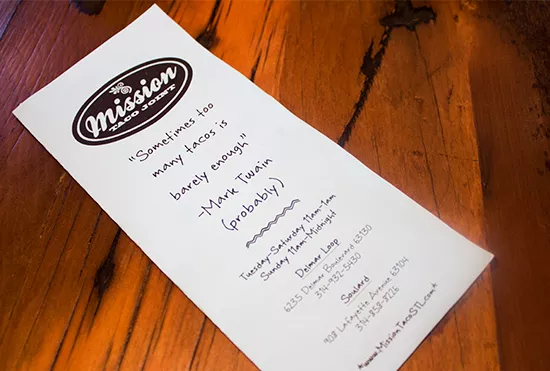 Mission
TACO JOINT
"Sometimes too
many tacos is
barely enough"
-Mark Twain
(probably)
Tuesday-Saturday 11am-1am
Sunday 11am-Midnight
Delmar Loop
6235 Delmar Boulevard 63130
314-932-5430
Soulard
908 Lafayette Avenue 63104
314-858-8226
*www.MissionTacoSTL.com*